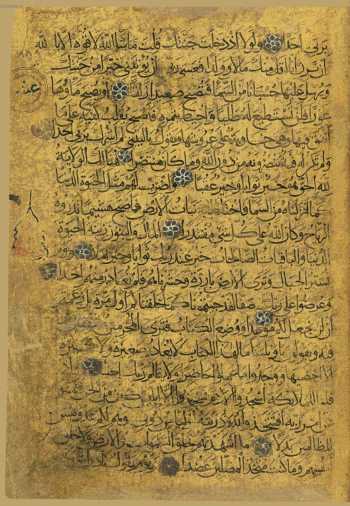 بربي أحدا ولولا إذ دخلت جنتك قلت ما شاء الله لا قوة إلا بالله
إن ترن أنا أقل منك مالا وولدا فعسى ربي أن يؤتين خيرا من جنتك
ويرسل عليها حسبانا من السماء فتصبح صعيدا زلقا أو يصبح ماؤها
غورا فلن تستطيع له طلبا وأحيط بثمره فأصبح يقلب كفيه على ما
أنفق فيها وهي خاوية على عروشها ويقول يا ليتني لم أشرك بربي أحدا
ولم تكن له فئة ينصرونه من دون الله وما كان منتصرا هنالك الولاية
لله الحق هو خير ثوابا وخير عقبا واضرب لهم مثل الحيوة الدنيا
كماء أنزلناه من السماء فاختلط به نبات الأرض فأصبح هشيما تذروه
الرياح وكان الله على كل شيء مقتدرا المال والبنون زينة الحيوة
الدنيا والباقيات الصالحات خير عند ربك ثوابا وخير أملا ويوم
نسير الجبال وترى الأرض بارزة وحشرناهم فلم نغادر منهم أحدا
وعرضوا على ربك صفا لقد جئتمونا كما خلقناكم أول مرة بل زعمتم
ألن نجعل لكم موعدا ووضع الكتاب فترى المجرمين مشفقين مما
فيه ويقولون يا ويلتنا مال هذا الكتاب لا يغادر صغيرة ولا كبيرة
إلا أحصيها ووجدوا ما عملوا حاضرا ولا يظلم ربك أحدا وإذ
قلنا للملائكة اسجدوا لآدم فسجدوا إلا إبليس كان من الجن ففسق
عن أمر ربه أفتتخذونه وذريته أولياء من دوني وهم لكم عدو بئس
للظالمين بدلا ما أشهدتهم خلق السموات والأرض ولا خلق
أنفسهم وما كنت متخذ المضلين عضدا ويوم يقول نادوا